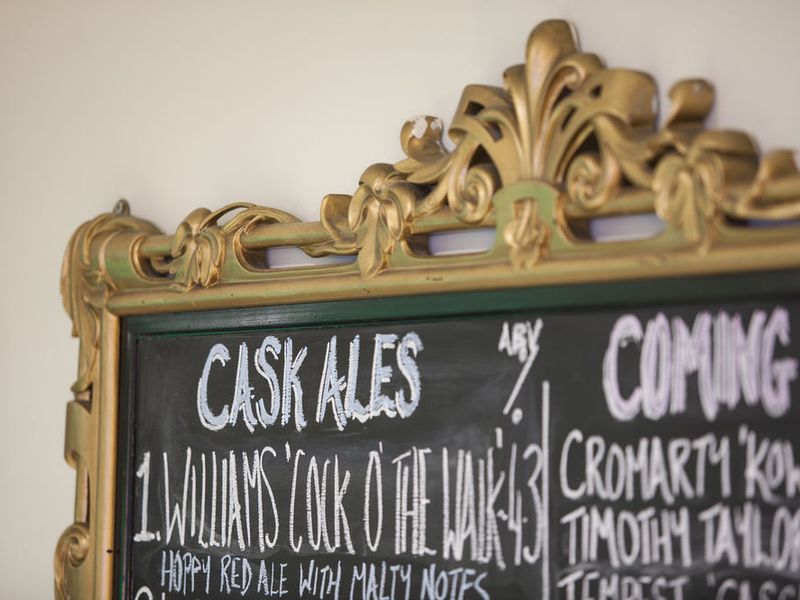 CASK ALES ABV %
1. WILLIAMS 'COCK O' THE WALK' 4.3
HOPPY RED ALE WITH MALTY NOTES
COMING
CROMARTY
TIMOTHY TAYLOR
TEMPEST